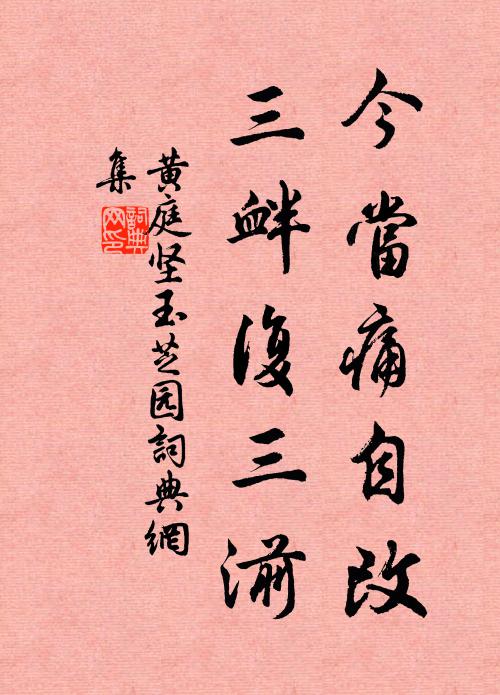 今當痛自改
三衅復三湔
黄庭坚玉芝园詞典網
集
詞典網印